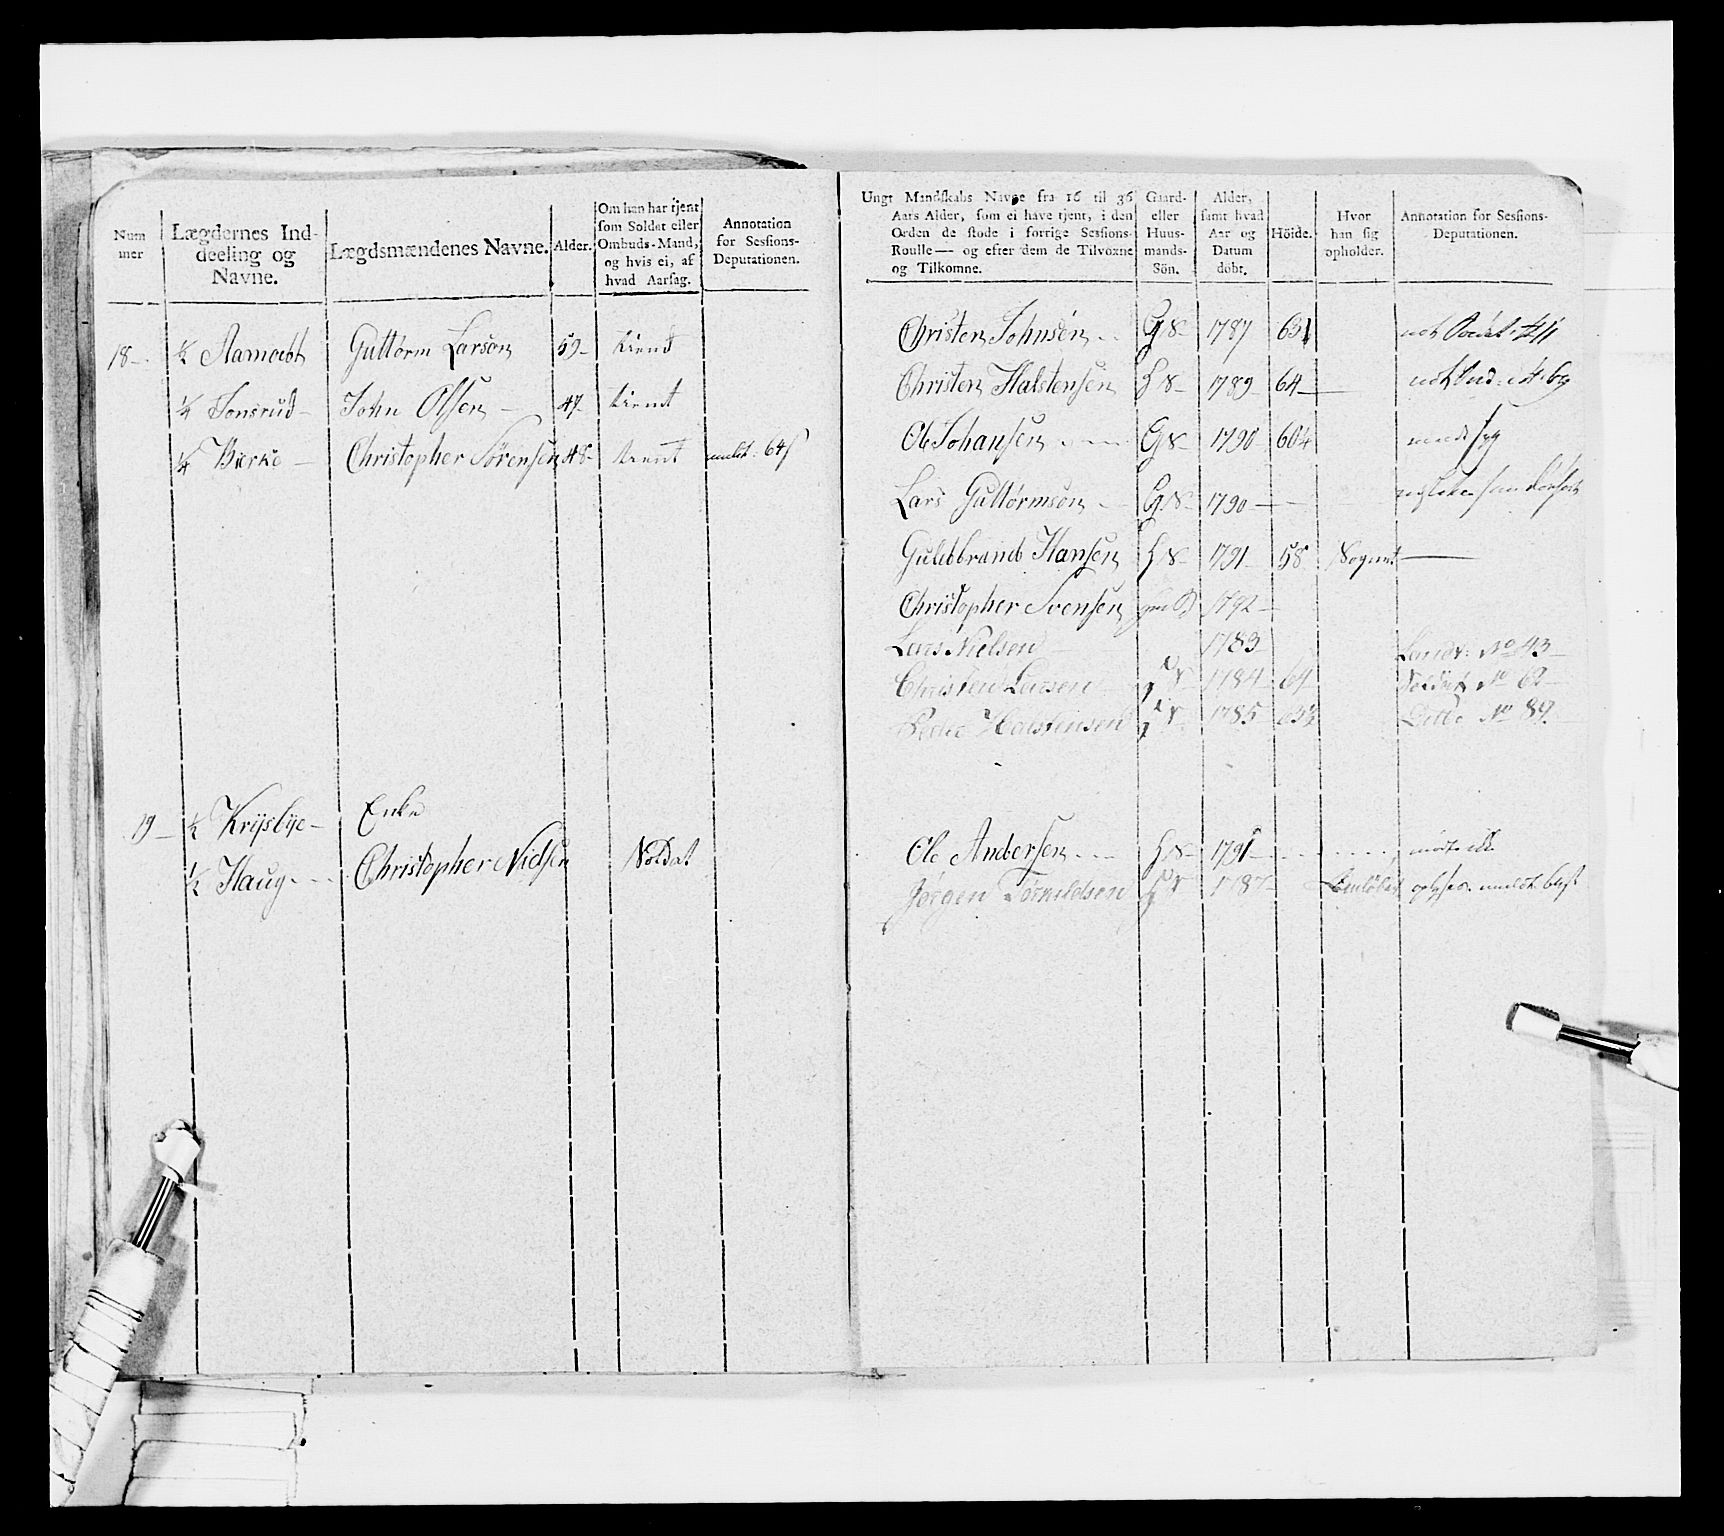 Num
mer
Lægdernes Ind-
deeling og
Navne.
Lægdsmændenes Navne.
Alder.
Om han har tjent
som Soldat eller
Ombuds-Mand,
og hvis ei, af
hvad Aarsag.
Annotation
for Sessions-
Deputationen.
18 ½ Aamodt Guttorm Larsen 59 tient
¼ Tonsrud John Olsen 47 tient
¼ Bierke Christopher Sørensen 48 tient
19 ½ Krysbye Enke
½ Haug Christopher Nielsen Soldat
Ungt Mandskabs Navne fra 16 til 36
Aars Alder, som ei have tjent, i den
Orden de stode i forrige Sessions-
Roulle — og efter dem de Tilvoxne
og Tilkomne.
Gaard-
eller
Huus-
mands-
Sön.
Alder,
samt hvad
Aar og
Datum
döbt.
Höide.
Hvor
han sig
opholder.
Annotation for Sessions-
Deputationen.
Christen Johnsen G S 1787
Christen Halstensen H S 1789 64
Ole Johansen G S 1790 60¼
Lars Guttormsen G S 1790
Guldbrand Hansen H S 1791 58 Sognet
Christopher Svensen 1792
Lars Nielsen 1783 Landv: No 43
Christen Larsen 1784 64 Soldat No 62
Peder Halstensen 1785 Ditto No 89
Ole Andersen H S 1791
Jørgen Tornildsen 1787